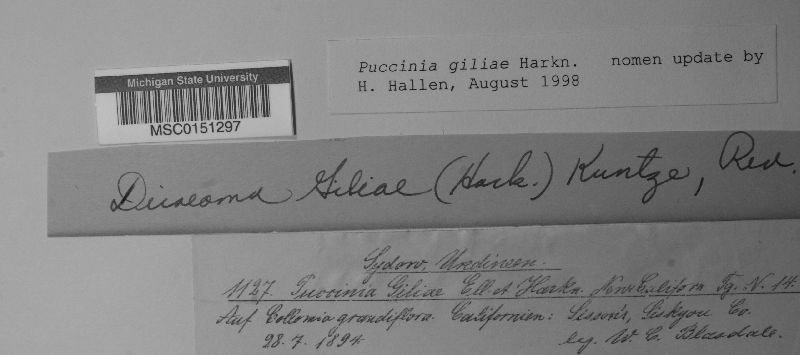 Puccinia giliae Harkn. nomen update by
H. Hallen, August 1998
Michigan State University
MSC0151297
Dicaeoma Giliae (Hark.) Kuntze, Rev.
Sydow, Uredineen.
1127. Puccinia Giliae Ell et Harkn. Fg. N. 14.
Auf Collomia grandiflora. Californien: Sisson's, Siskyou Co.
28. 7. 1894 leg. W. C. Blasdale.